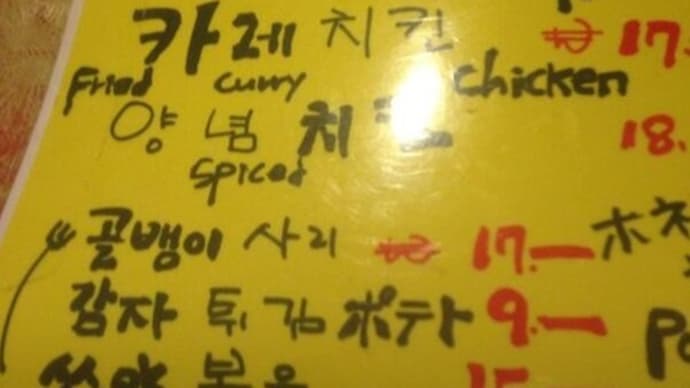 카레 치킨 17.
Fried curry chicken
양념 치킨 18.
Spiced
골뱅이 사리 17.—
감자 튀김 ポテト 9.—